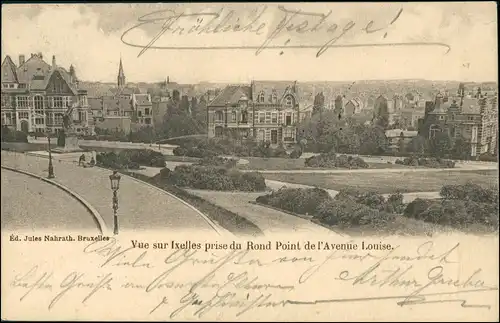 Fröhliche Festtage!
Éd. Jules Nahrath. Bruxelles
Vue sur Ixelles prise du Rond Point de l'Avenue Louise.
Viele Grüße von
Arthur
beste Grüße